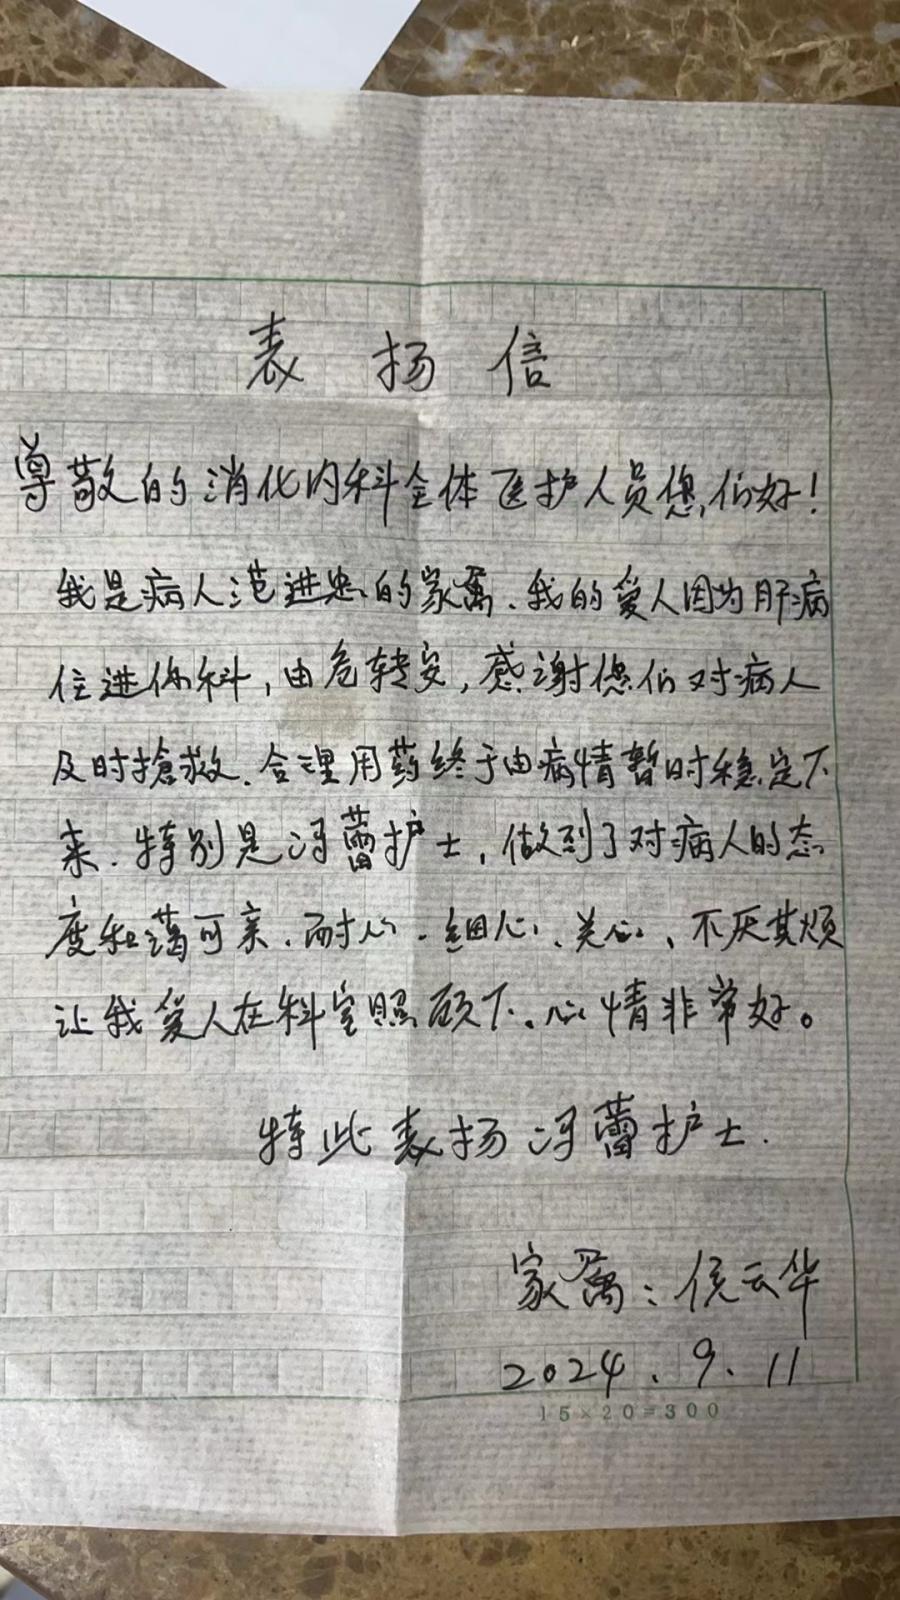 表扬信
尊敬的消化内科全体医护人员您们好！
我是病人范进忠的家属、我的爱人因为肝病
住进你科，由危转安，感谢您们对病人
及时抢救、合理用药终于由病情暂时稳定下
来、特别是冯蕾护士，做到了对病人的态
度和蔼可亲、耐心、细心、关心、不厌其烦
让我爱人在科室照顾下、心情非常好。
特此表扬冯蕾护士.
家属：侯云华
2024.9.11
15×20=300